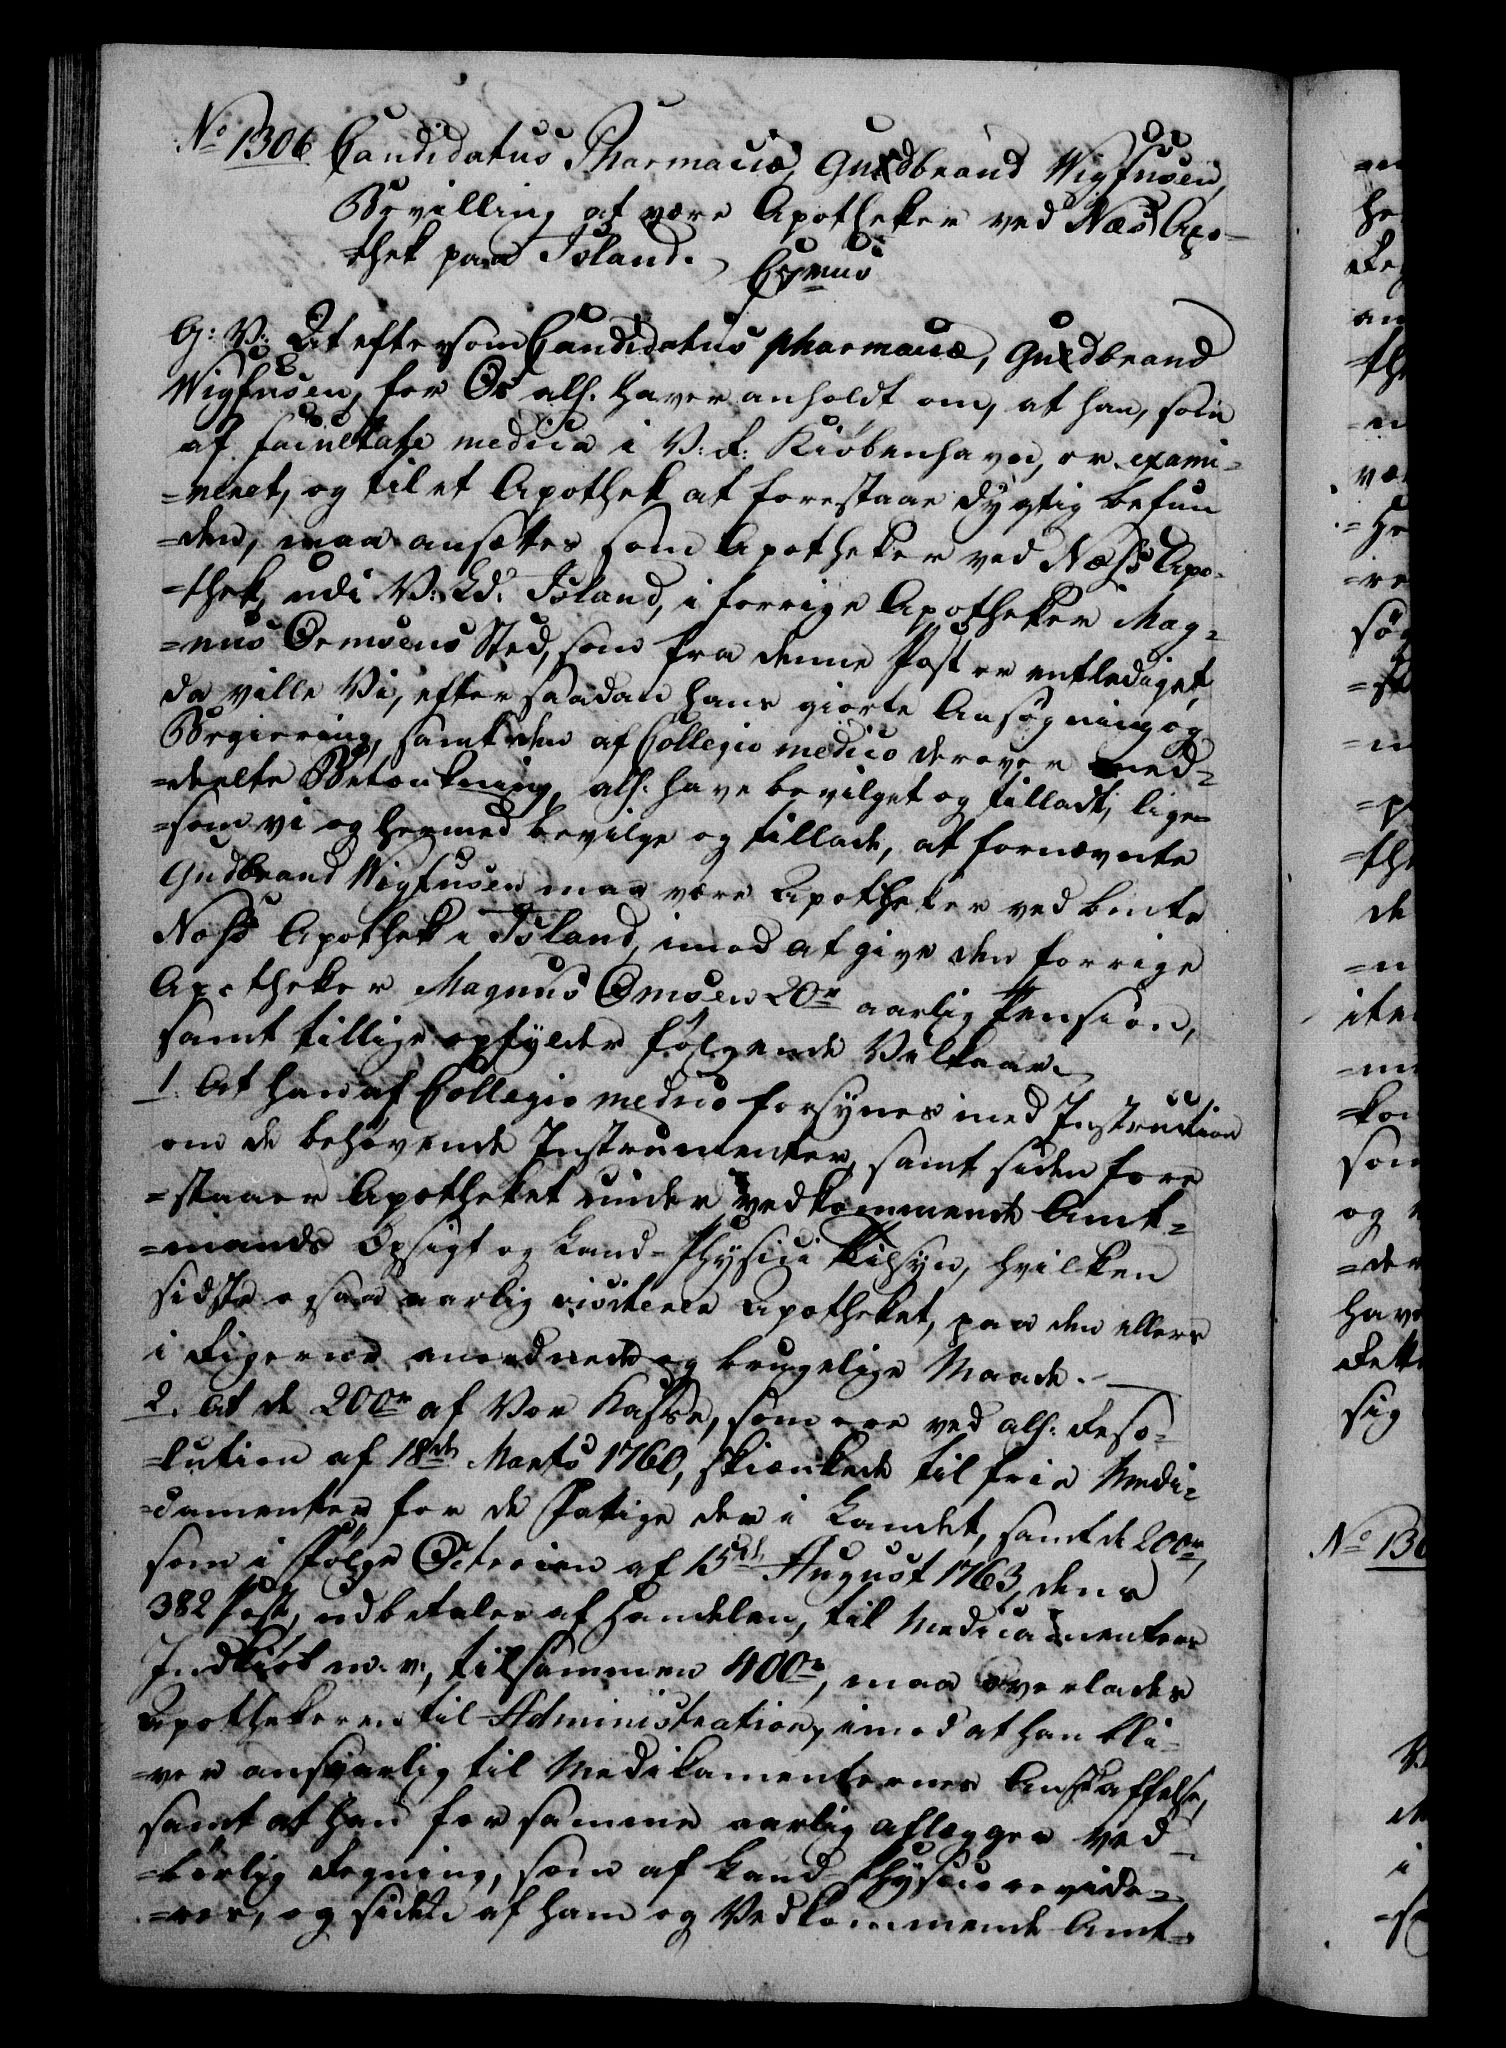 No 1306 Candidatus Pharmaciæ, Gudbrand Wigfusen,
Bevilling at være Apotheker ved Næs Apo-
thek paa Island.
G: V: At eftersom Candidatus pharmaciæ, Gudbrand
Wigfusen, for Os allh. haver anholdt om, at han, som
af facultate medica i V: K: Kiöbenhavn, er exami-
=neret, og til et Apothek at forestaae dygtig befun
=den, maa ansættes som Apotheker ved Næss Apo-
=thek, udi V: Ld: Island, i forrige Apotheker Mag-
=nus Ormsens Sted, som fra denne Post er entlediget,
da ville Vi, efter saadan hans giorte Ansøgning og
Begiering, samt den af Collegio medico derover med-
=deelte Betænkning, allh. have bevilget og tilladt, lige=
=som vi og hermed bevilge og tillade, at fornævnte
Gudbrand Wigfusen maa være Apotheker ved bemte
Næss Apothek i Island, imod at give den forrige
Apotheker Magnus Ormsen 20r aarlig Pension,
samt tillige opfylder følgende Vilkaar.
1. At han af Collegio medico forsynes med Instruction
om de behøvende Instrumenter, samt siden fore
=staaer Apotheket under vedkommende Amt-
=mands Opsigt og Land-Physici Tilsyn, hvilken
sidste ogsaa aarlig visiterer Apotheket, paa den ellers
i Rigerne anordnede og brugelige Maade.
2. At de 200r af Vor Kasse, som ere ved allh. Reso-
=lution af 18de Marts 1760, skienkede til frie Medi-
=camenter for de Fattige der i Landet, samt de 200r,
som i Følge Octroien af 15de August 1763, dens
38 2 Post, udbetales af Handelen, til Medicamenters
Indkiöb m. v:, tilsammen 400r, maa overlades
Apothekeren til Administration, imod at han bli-
=ver ansvarlig til Medikamenternes Anskaffelse,
samt at han for samme aarlig aflægger ved-
=børlig Regning, som af Land-Physico revide-
=res, og sidst af ham og Vedkommende Amt-